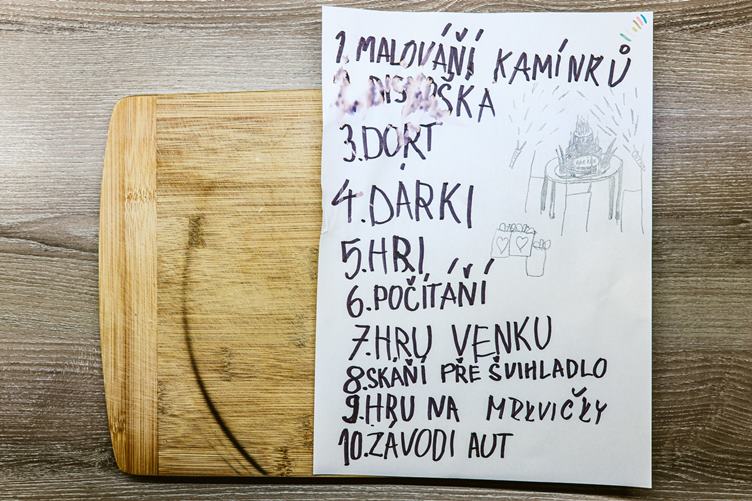 1. MALOVÁŇÍ KAMÍNKŮ
2. DISKOŠKA
3. DORT
4. DÁRKI
5. HRI
6. POČÍTÁŇÍ
7. HRU VENKU
8. SKÁŇÍ PŘE ŠVIHLADLO
9. HRU NA MRKVIČKY
10. ZÁVODI AUT